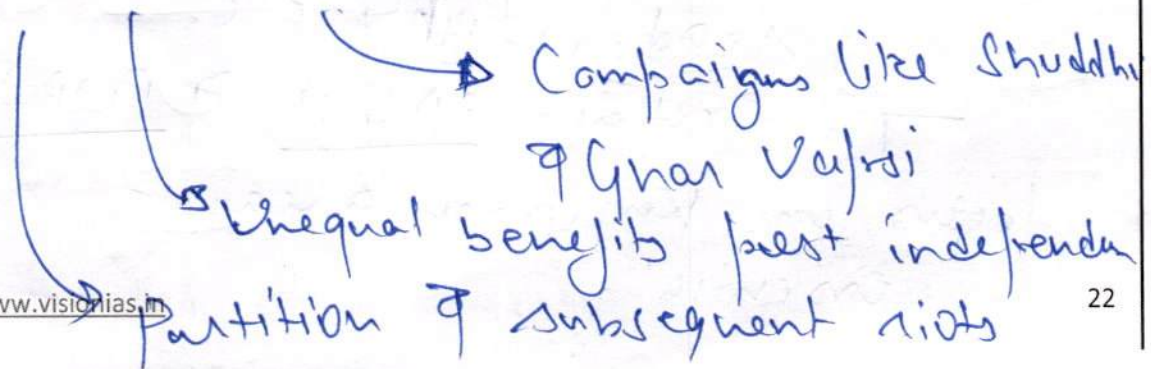 Compaigns like Shuddhi
& Ghar Vapsi
Unequal benefits post independen
Partition & subsequent riots
www.visionias.in
22